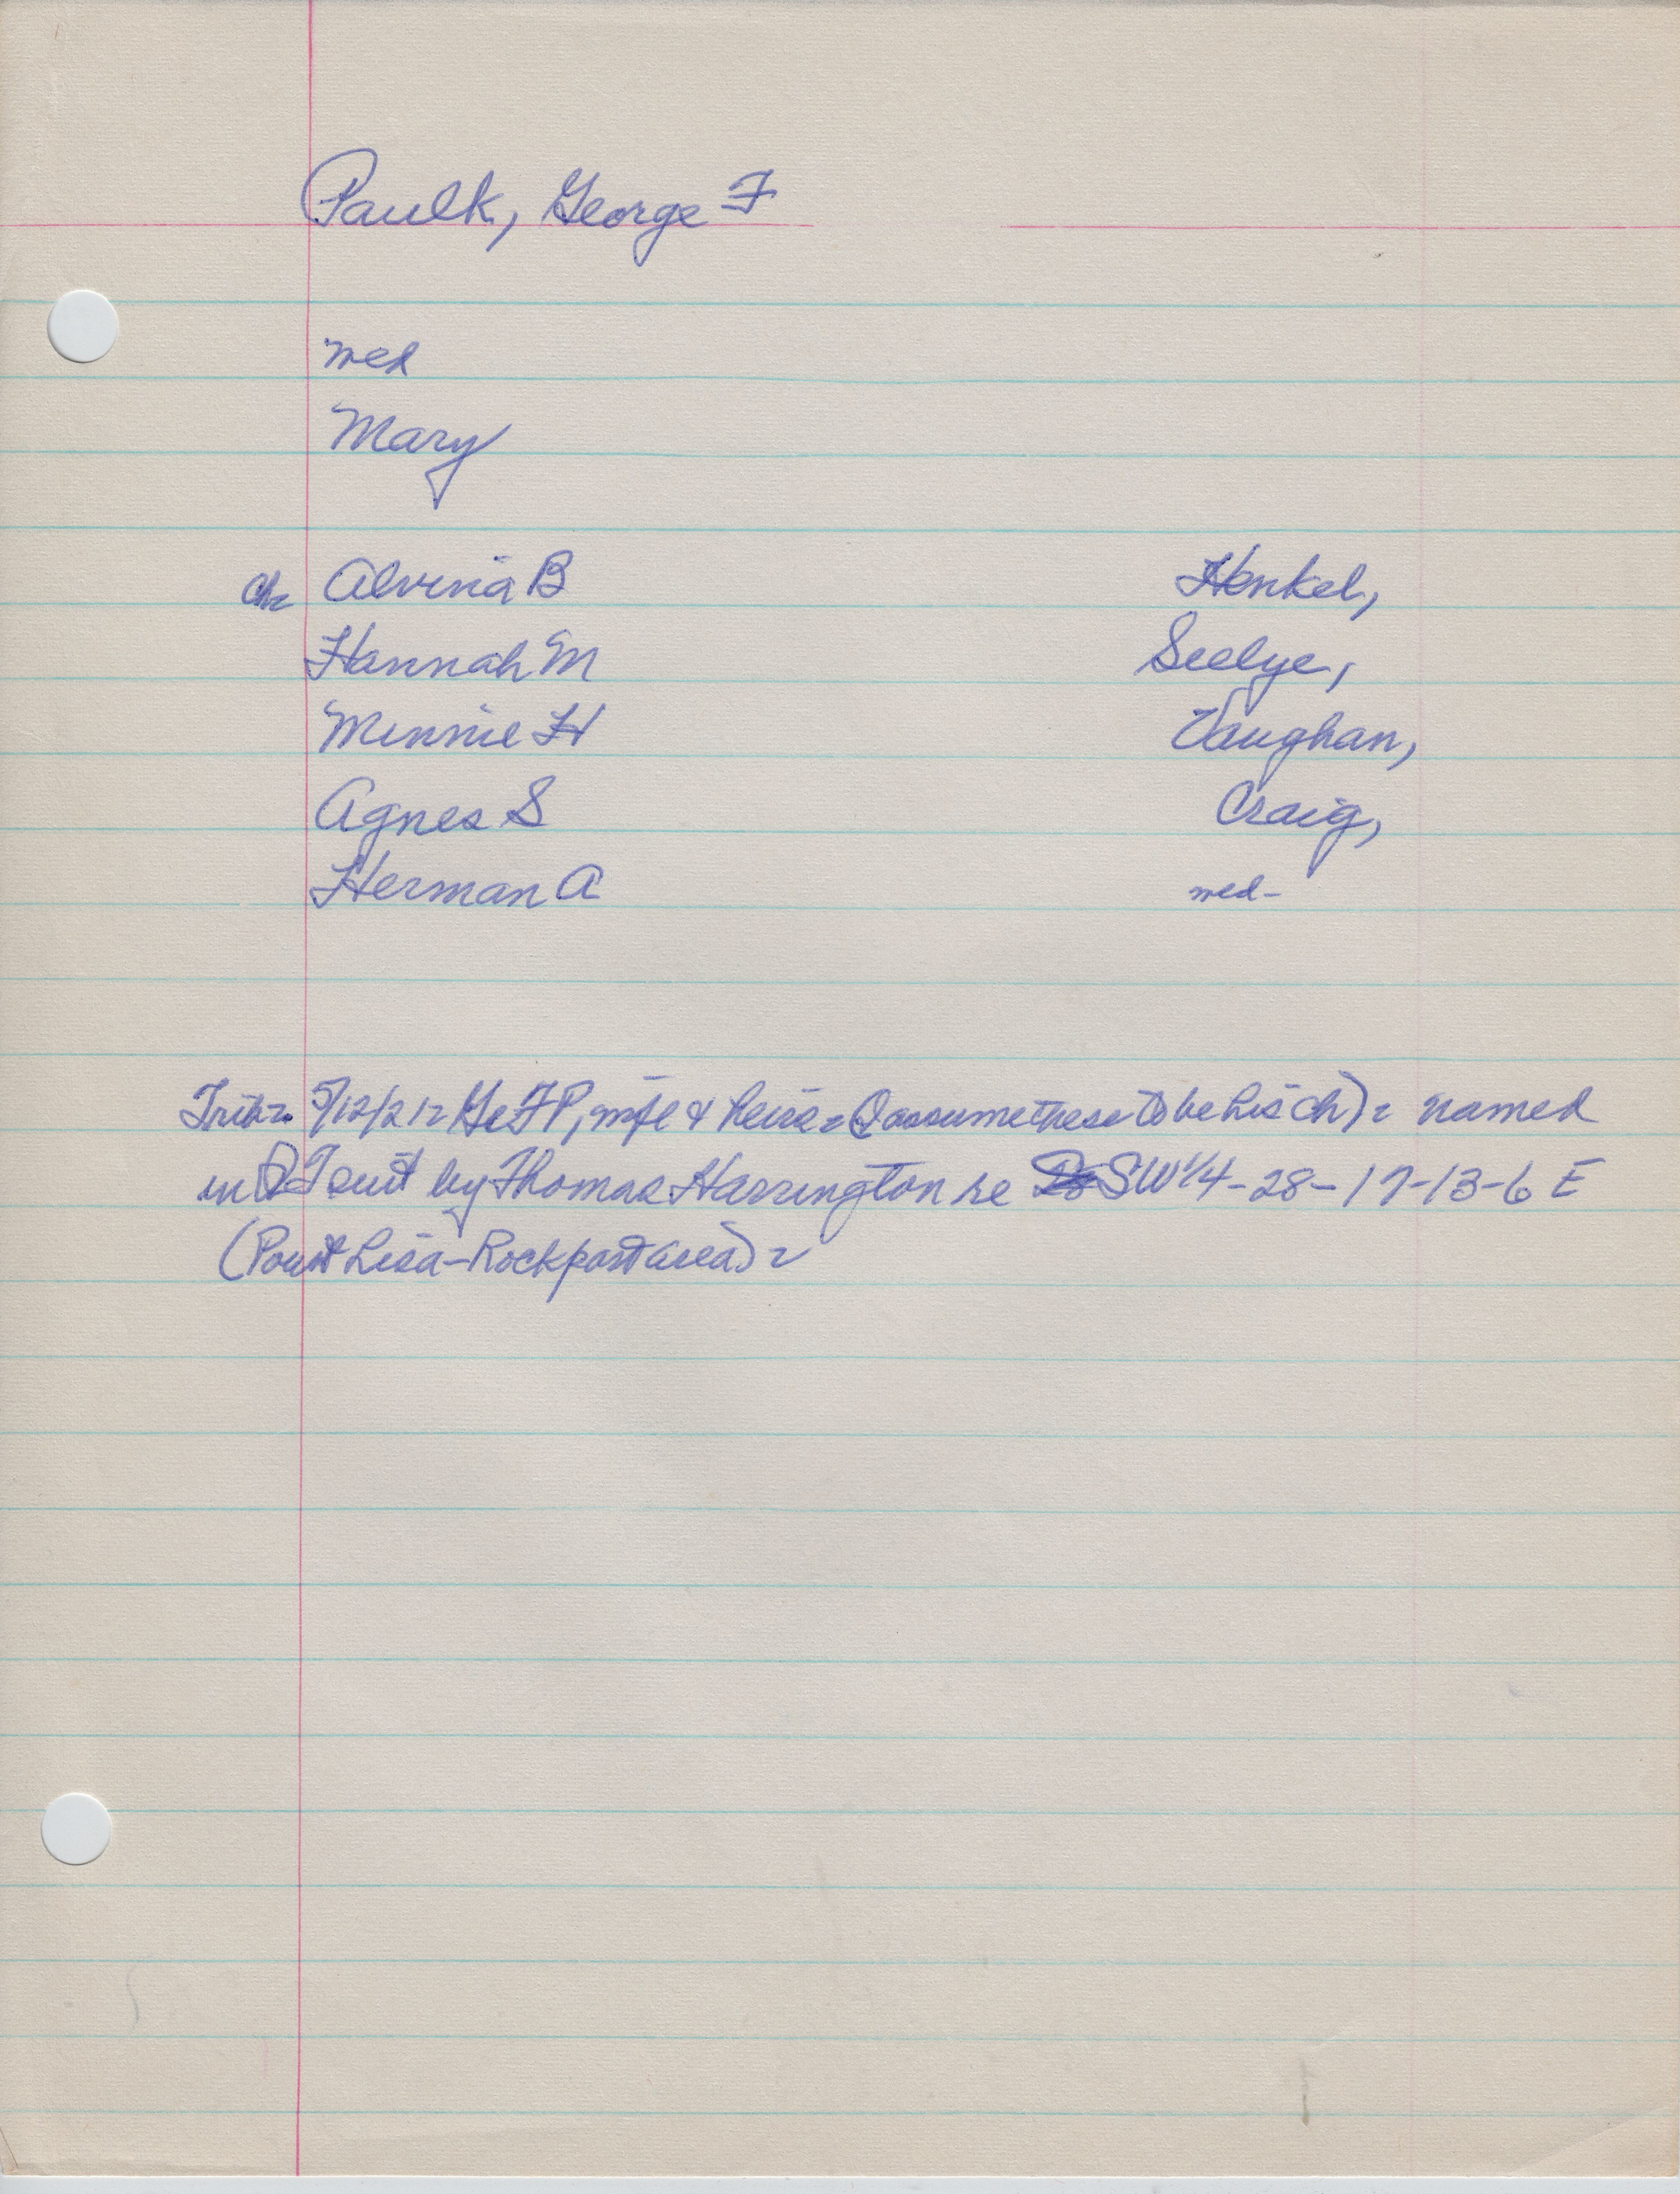 Paulk, George F
med
Mary
ch= Alvina B Henkel,
Hannah M Seelye,
Minnie H Vaughan,
Agnes S Craig,
Herman A med-
Trib= 5/12/21= Ge F P, wife & heirs= (I assume these to be his ch)= named
in QT suit by Thomas Harrington re SW 1/4-28-17-13-6 E
(Point Lisa-Rockport area)=